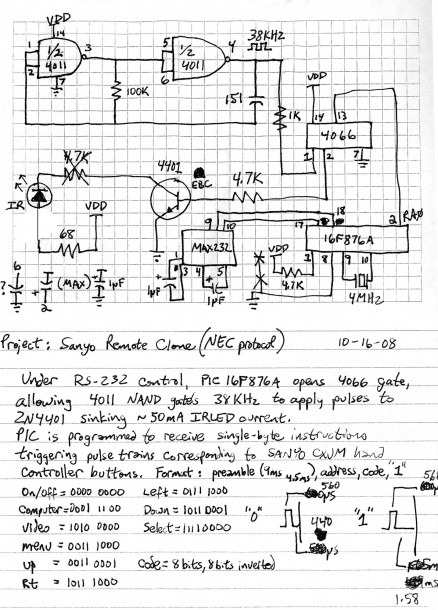 VDD
38KHz
14
1
1/2
4011
3
2
7
5
1/2
4011
4
6
100K
151
1K
VDD
14
13
4066
1
2
7
4.7K
4401
EBC
4.7K
IR
VDD
68
9
10
MAX232
1
3
4
5
18
17
2
RA0
16F876A
1
8
9
10
VDD
4.7K
4MHz
6
?
+
2
(MAX)
1µF
1µF
1µF
Project: Sanyo Remote Clone (NEC protocol)
10-16-08
Under RS-232 control, PIC 16F876A opens 4066 gate,
allowing 4011 NAND gates 38KHz to apply pulses to
2N4401 sinking ~50mA IRLED current.
PIC is programmed to receive single-byte instructions
triggering pulse trains corresponding to SANYO CXVM hand
Controller buttons. Format: preamble (9ms 4.5ms), address, code, "1"
On/off = 0000 0000 Left = 0111 1000
Computer = 0001 1100 Down = 1011 0001
Video = 1010 0000 Select = 1111 0000
menu = 0011 1000
up = 0011 0001 Code = 8 bits, 8 bits inverted
Rt = 1011 1000
"0"
560
µs
440
µs
"1"
560
ms
1.58